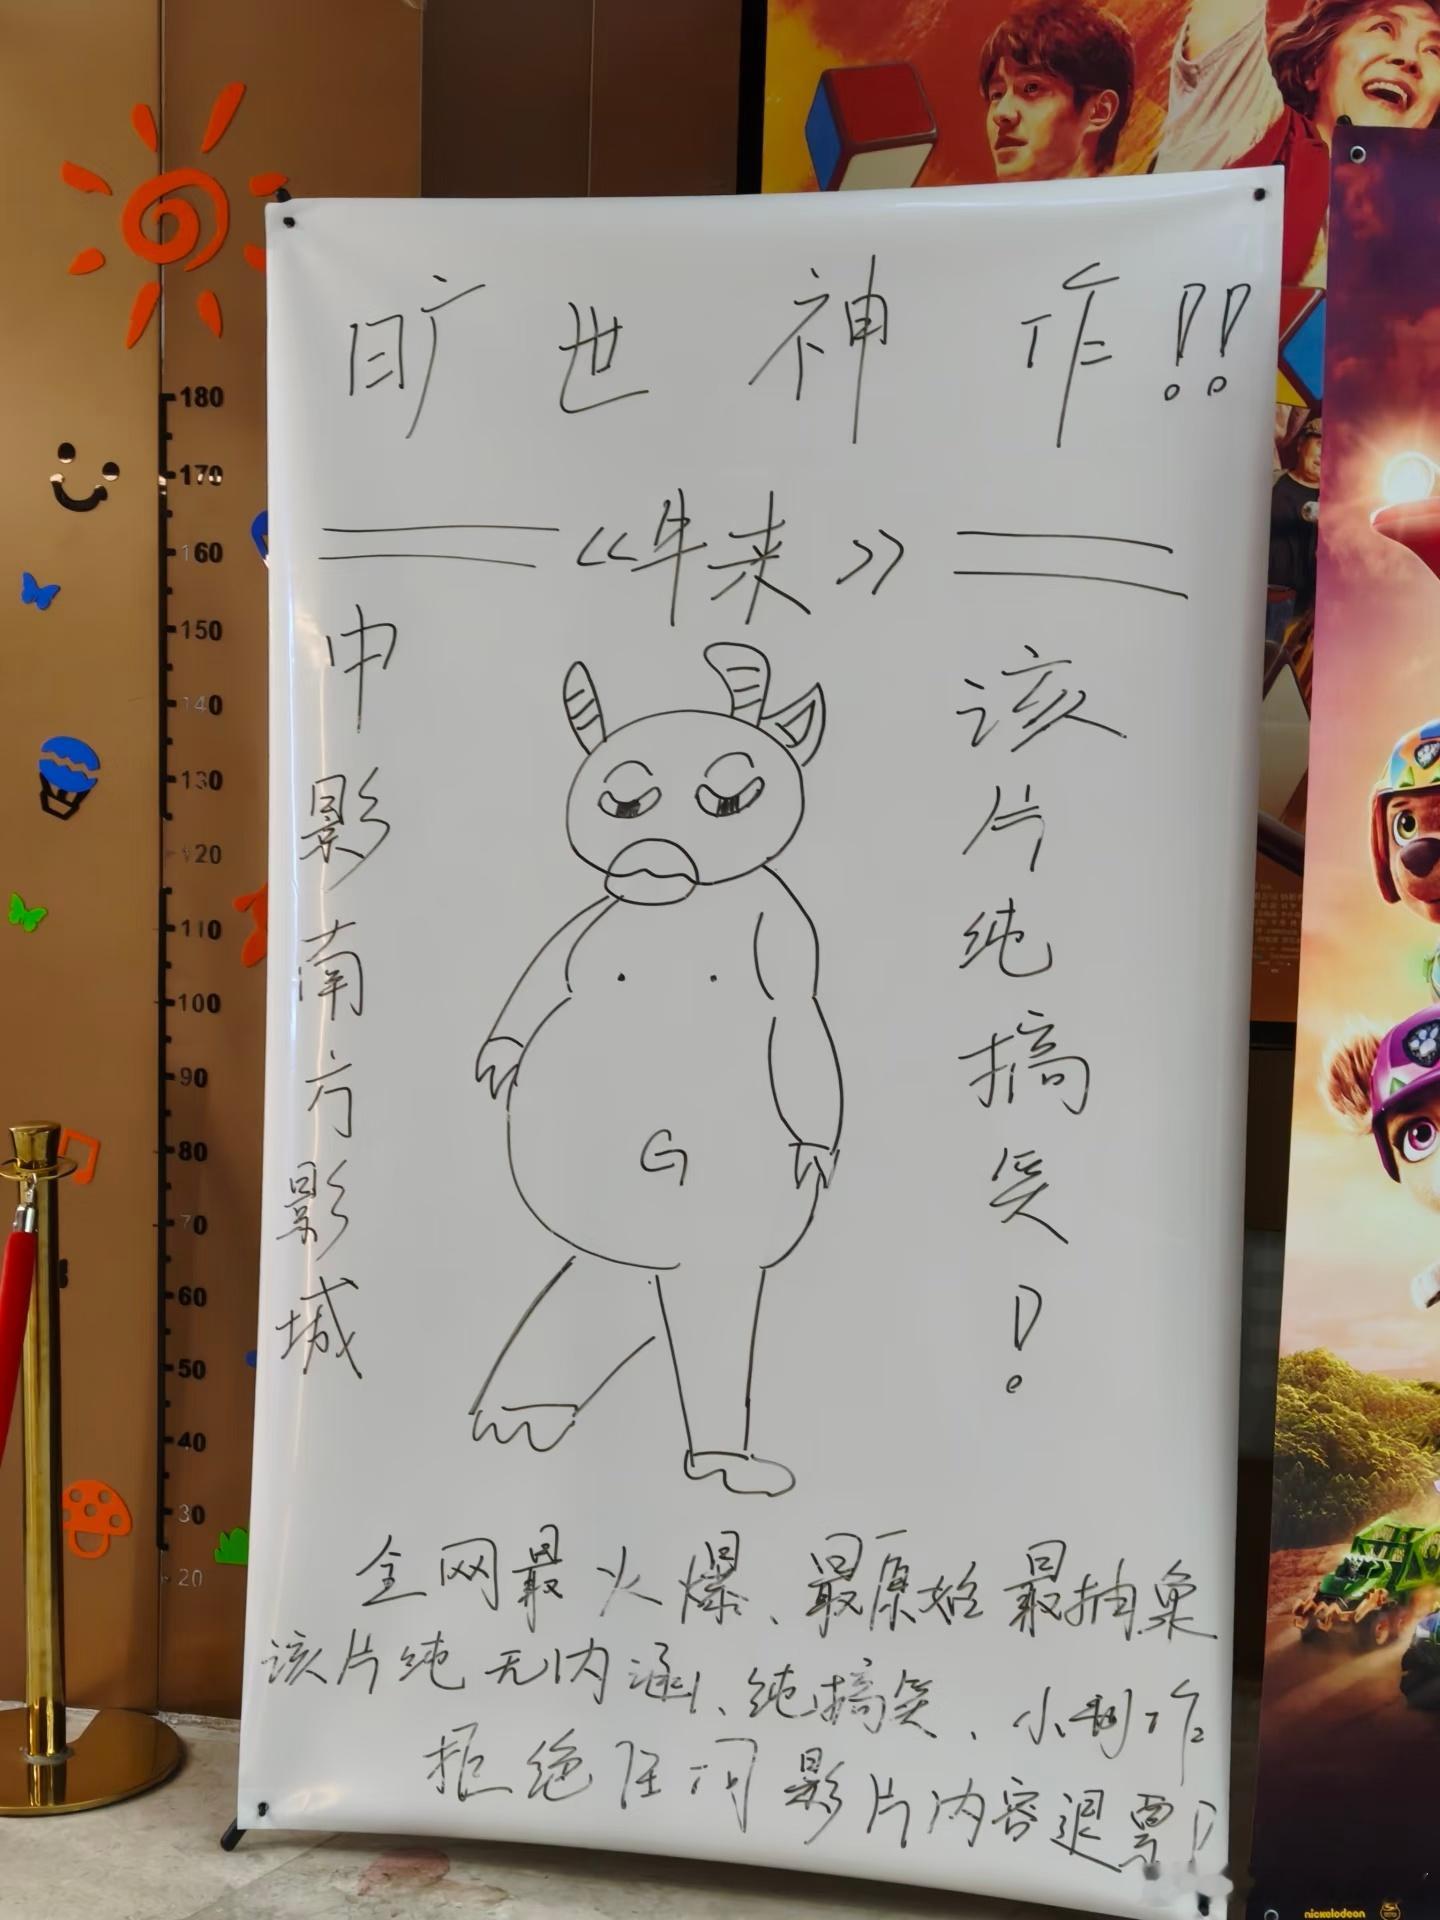 旷世神乍!!
《牛来》
中影南方影城
该片纯搞笑!
G
全网最火爆、最原始最抽象
该片纯无内涵、纯搞笑、小制乍
拒绝任何影片内容退票!
180
170
160
150
140
130
120
110
100
90
80
70
60
50
40
30
20
nickelodeon